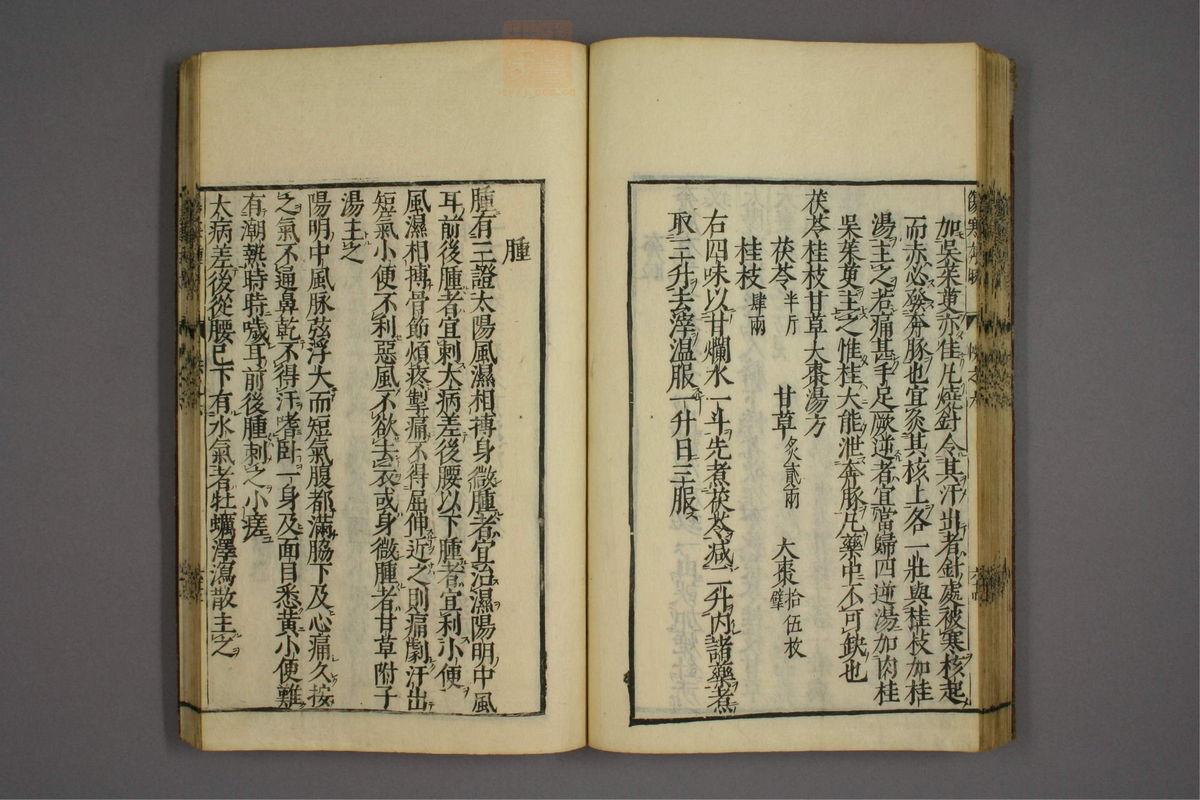 加吳茱萸亦佳凡燒針令其汗出者針處被寒核起
而赤必發奔豚也宜灸其核上各一壯與桂枝加桂
湯主之若痛甚手足厥逆者宜當歸四逆湯加肉桂
吳茱萸主之惟桂大能泄奔豚凡藥中不可缺也
茯苓桂枝甘草大棗湯方
茯苓半斤 甘草炙貳兩 大棗拾伍枚擘
桂枝肆兩
右四味以甘爛水一斗先煮茯苓减二升内諸藥煮
取三升去滓温服一升日三服
腫
腫有三證太陽風濕相搏身微腫者宜治濕陽明中風
耳前後腫者宜刺大病差後腰以下腫者宜利小便
風濕相搏骨節煩疼掣痛不得屈伸近之則痛劇汗出
短氣小便不利惡風不欲去衣或身微腫者甘草附子
湯主之
陽明中風脉弦浮大而短氣腹都滿脇下及心痛久按
之氣不通鼻乾不得汗嗜卧一身及面目悉黃小便難
有潮熱時時噦耳前後腫刺之小瘥
大病差後從腰已下有水氣者牡蠣澤瀉散主之